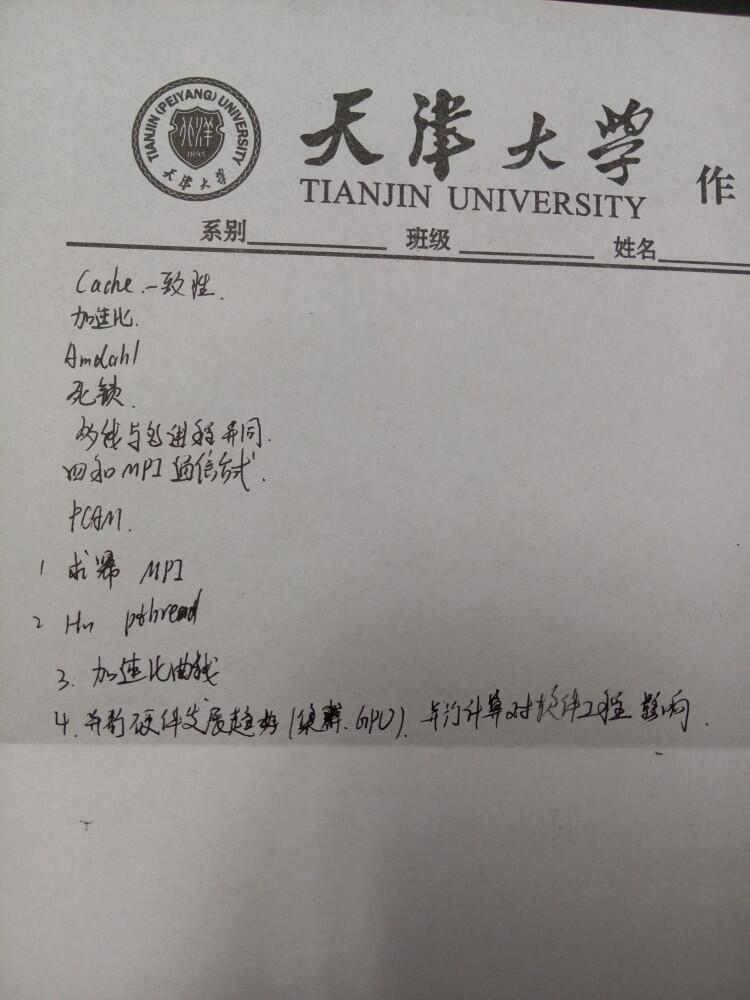 TIANJIN (PEIYANG) UNIVERSITY
北洋
1895
天津大学
天津大学
TIANJIN UNIVERSITY
作
系别 班级 姓名
Cache 一致性.
加速比.
Amdahl
死锁.
线与进程异同.
四种MPI通信方式.
PCAM.
1 求幂 MPI
2 Hn pthread
3. 加速比曲线
4. 并行硬件发展趋势(集群、GPU). 并行计算对软件工程影响.